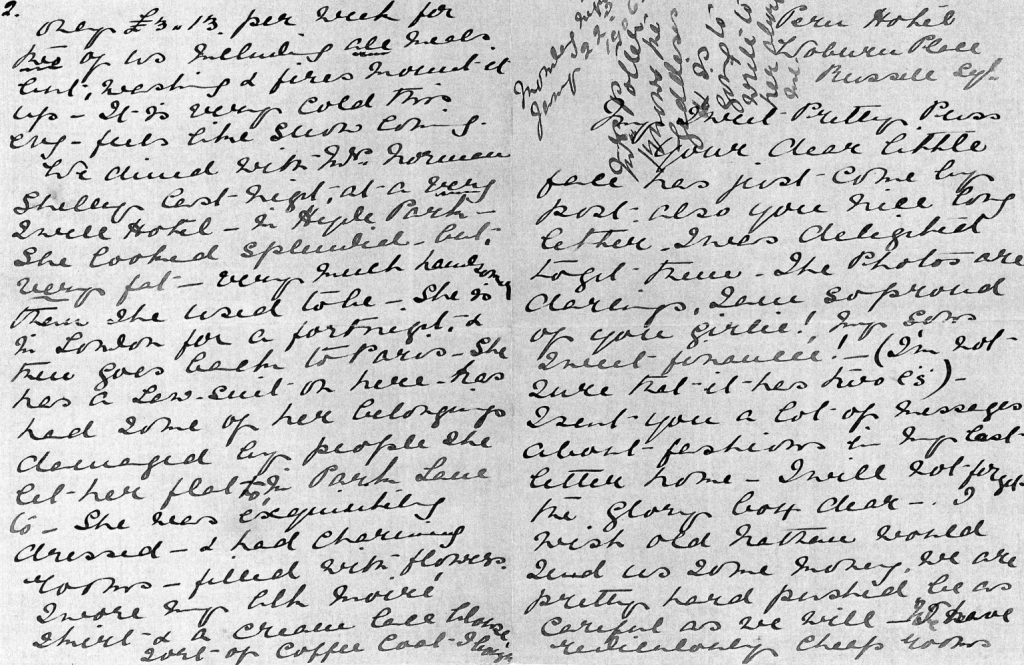 Peru Hotel
Woburn Place
Russell Sq.
Monday
address
& is
going to
write to
her about
me
Sweet Pretty Puss
Your dear little
face has just come by
post. also you nice long
letter. I was delighted
to get them – The Photos are
darlings, I am so proud
of you girlie! My sons
sweet finaucee! – (I'm not
sure that it has two e's) –
I sent you a lot of messages
about fashions in my last
letter home – I will not forget
the glory box dear – I
wish old Nathan would
send us some money, we are
pretty hard pushed, be as
careful as we will – We have
rediculously cheap rooms
2.
only £3.13. per week for
two of us including all meals
but, washing & fires mount it
up – It is very cold this
evg – feels like snow coming.
We dined with Mrs. Norman
Shelley last night, at a very
swell Hotel – in Hyde Park –
She looked splendid – but,
very fat – very much handsomer
than she used to be – She is
in London for a fortnight, &
then goes back to Paris – She
has a Law-suit on here – has
had some of her belongings
damaged by people she
let her flat in Park Lane
to – She was exquisitely
dressed – & had charming
rooms – filled with flowers.
I wore my blk moiré
skirt & a cream lace blouse,
sort of coffee coat